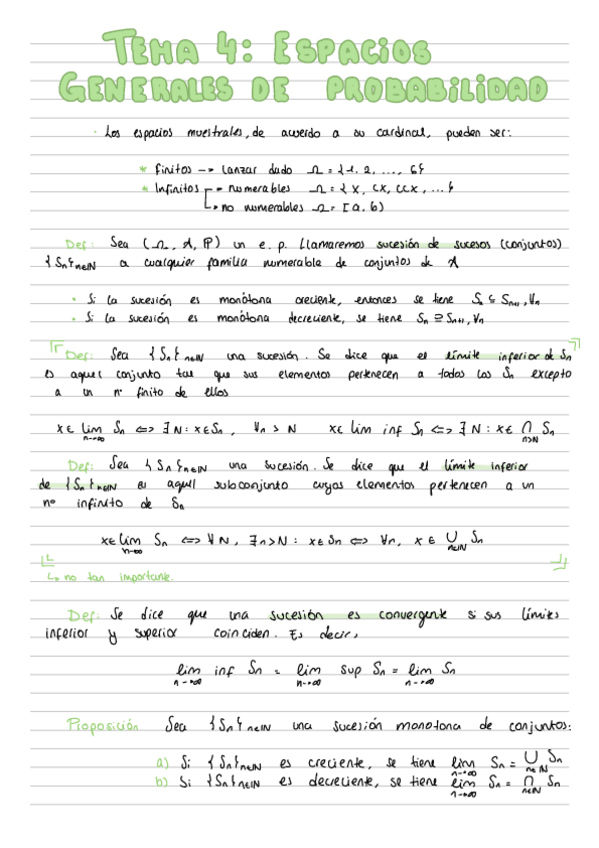 TEMA 4: ESPACIOS
GENERALES DE PROBABILIDAD
· Los espacios muestrales, de acuerdo a su cardinal, pueden ser:
* Finitos --> Lanzar dado Ω = {1, 2, ..., 6}
* Infinitos → numerables Ω = { x, cx, ccx, ... }
↳ no numerables Ω = [a, b)
Def: Sea (Ω, A, P) un e. p. Llamaremos sucesión de sucesos (conjuntos)
{Sn}n∈N a cualquier familia numerable de conjuntos de A
• Si la sucesión es monótona creciente, entonces se tiene Sn ⊆ Sn+1, ∀n
• Si la sucesión es monótona decreciente, se tiene Sn ⊇ Sn+1, ∀n
Def: Sea {Sn}n∈N una sucesión. Se dice que el límite inferior de Sn
es aquel conjunto tal que sus elementos pertenecen a todos los Sn excepto
a un nº finito de ellos
x ∈ lim n→∞ Sn <=> ∃ N : x ∈ Sn, ∀n > N x ∈ lim inf Sn <=> ∃ N : x ∈ ∩ n>N Sn
Def: Sea {Sn}n∈N una sucesión. Se dice que el límite inferior
de {Sn}n∈N es aquel subconjunto cuyos elementos pertenecen a un
nº infinito de Sn
x ∈ lim n→∞ Sn <=> ∀ N, ∃ n > N : x ∈ Sn <=> ∀n, x ∈ ∪ n∈N Sn
↳ no tan importante.
Def: Se dice que una sucesión es convergente si sus límites
inferior y superior coinciden. Es decir,
lim n→∞ inf Sn = lim n→∞ sup Sn = lim n→∞ Sn
Proposición Sea {Sn}n∈N una sucesión monotona de conjuntos:
a) Si {Sn}n∈N es creciente, se tiene lim n→∞ Sn = ∪ n∈N Sn
b) Si {Sn}n∈N es decreciente, se tiene lim n→∞ Sn = ∩ n∈N Sn